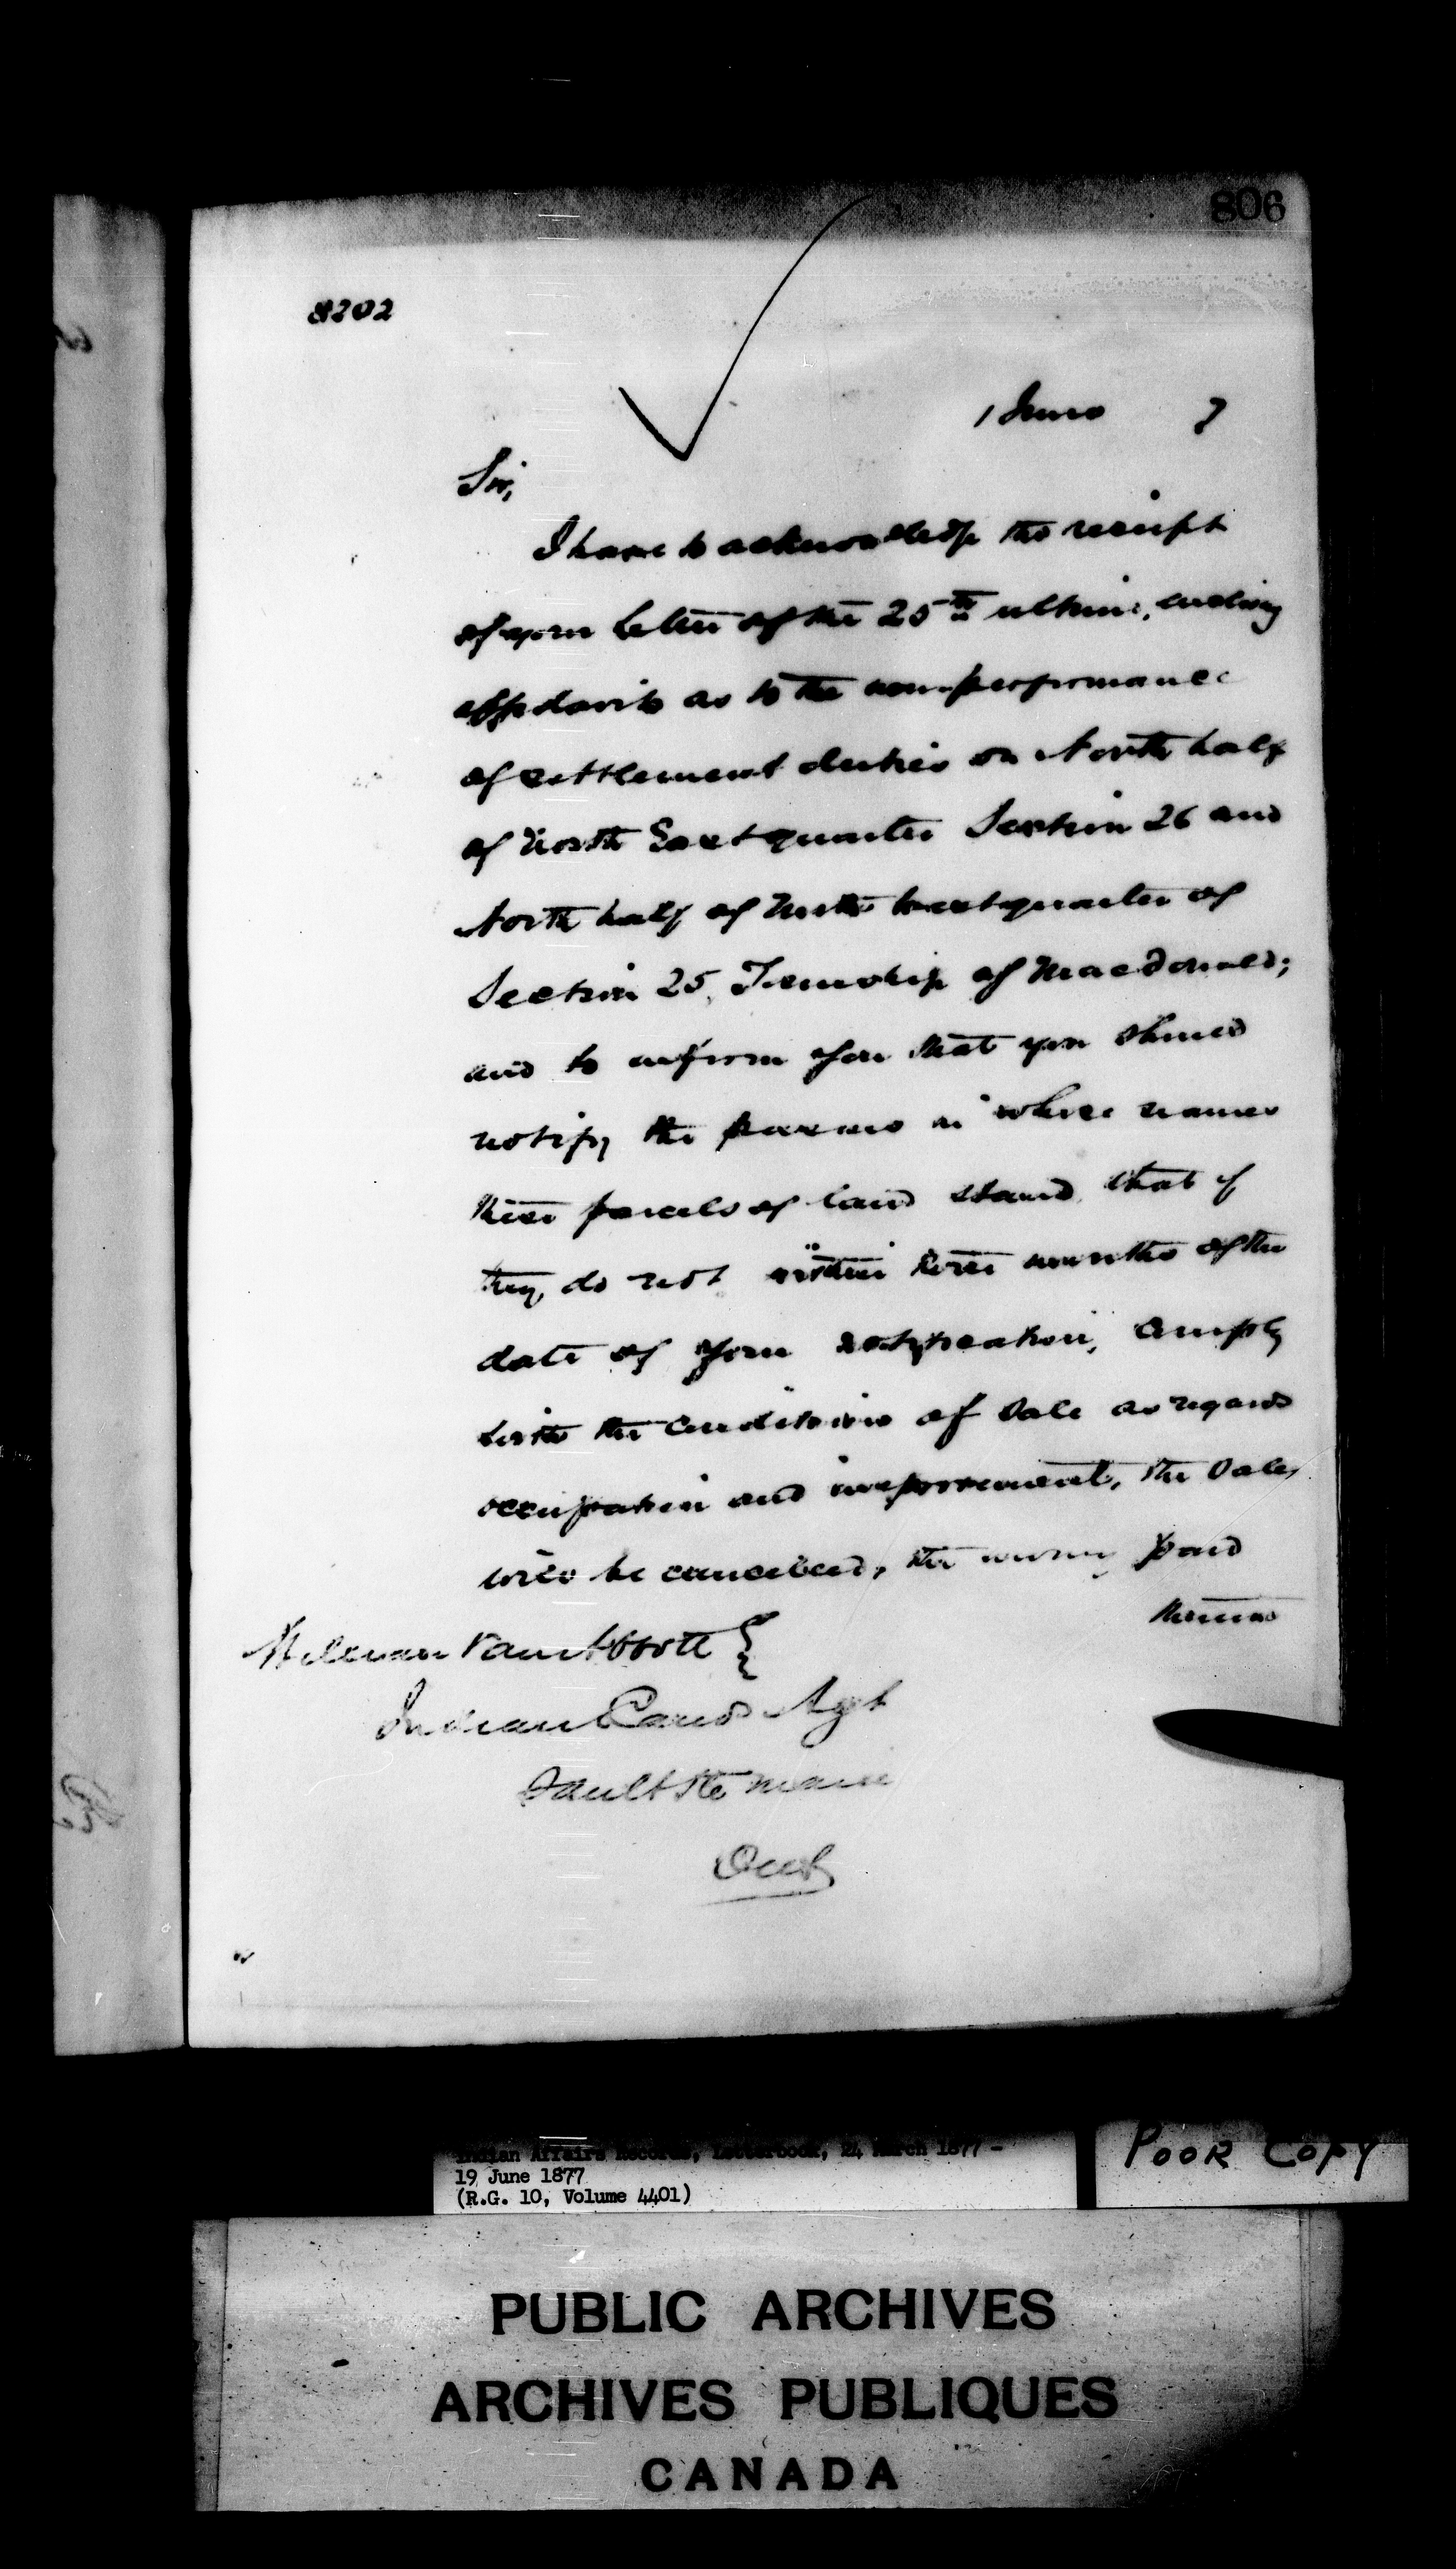 806
8202
1 June 7
Sir,
I have to acknowledge the receipt
of your letter of the 25th ultimo, enclosing
affidavits as to the non-performance
of settlement duties on North half
of North East quarter Section 26 and
North half of North West quarter of
Section 25, Township of Macdonald;
and to inform you that you should
notify the persons in whose names
these parcels of land stand, that if
they do not within three months of the
date of your notification, comply
with the conditions of sale as regards
occupation and improvement, the sales
will be cancelled, the money paid
thereon
Wm Van Abbott }
Indian Land Agt
Sault Ste Marie
Ont
Indian Affairs Records, Letterbook, 24 March 1877 -
19 June 1877
(R.G. 10, Volume 4401)
POOR COPY
PUBLIC ARCHIVES
ARCHIVES PUBLIQUES
CANADA